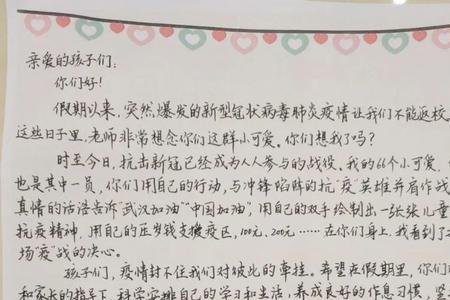 亲爱的孩子们:
你们好!
假期以来,突然爆发的新型冠状病毒肺炎疫情让我们不能返校
这些日子里,老师非常想念你们这群小可爱。你们想我了吗?
时至今日,抗击新冠已经成为人人参与的战役。我的66个小可爱,
也是其中一员,你们用自己的行动,与冲锋陷阵的抗“疫”英雄并肩作战
真情的话语告诉“武汉加油”“中国加油”,用自己的双手绘制出一张张儿童
抗疫精神,用自己的压岁钱支援疫区,100元、200元……在你们身上,我看到了
场“疫”战的决心。
孩子们,疫情封不住我们对彼此的牵挂。希望在假期里,你们
和家长的指导下,科学安排自己的学习和生活,养成良好的作息习惯,坚